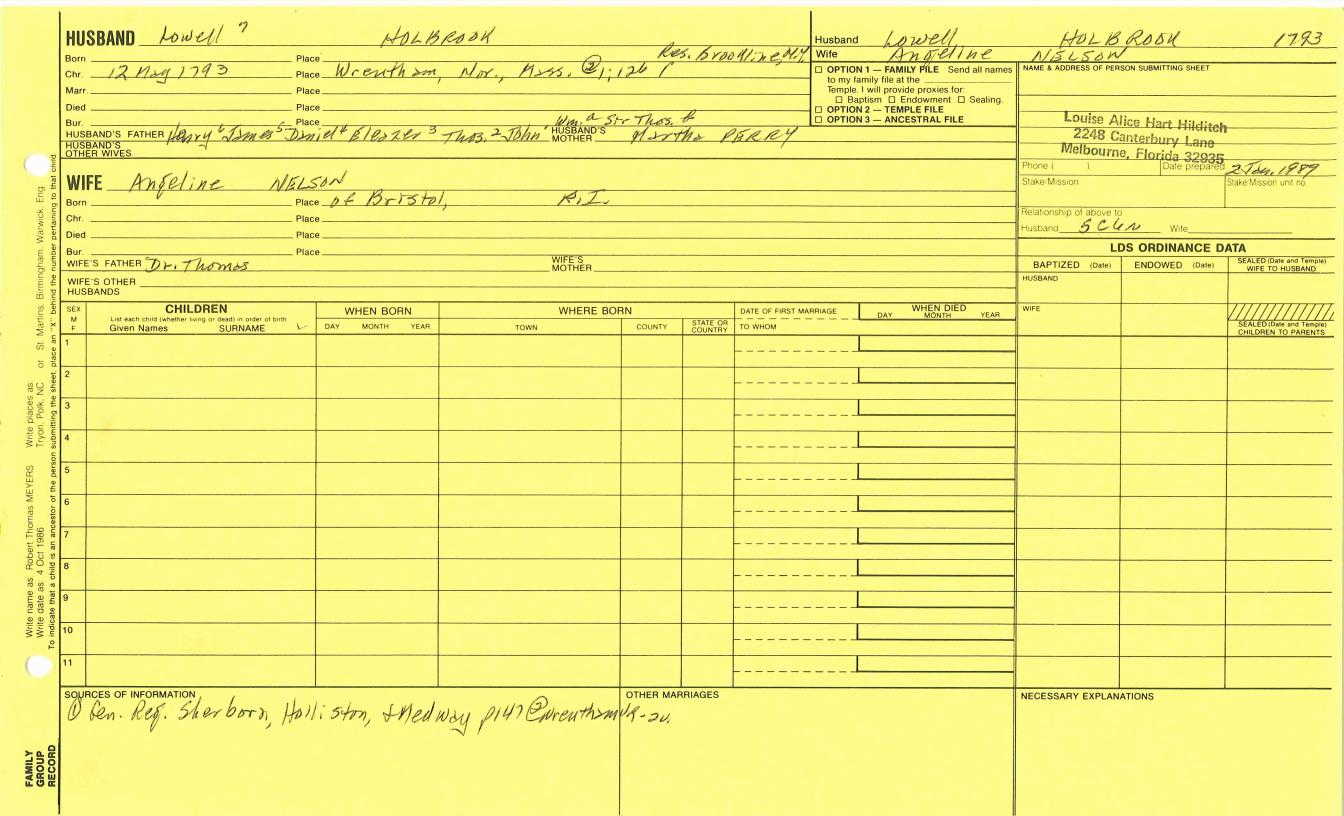 HUSBAND Lowell 7 HOLBROOK
Born Place Res. Brookline,
Chr. 12 May 1793 Place Wrentham, Nor., Mass. ② 1; 126
Marr. Place
Died Place
Bur. Place Wm. Str Thos.
HUSBAND'S FATHER Henry 6 James 5 Daniel 4 Eleazer 3 Thos. 2 John 1 HUSBAND'S MOTHER Martha PERRY
HUSBAND'S OTHER WIVES
WIFE Angeline NELSON
Born Place of Bristol, R.I.
Chr. Place
Died Place
Bur. Place
WIFE'S FATHER Dr. Thomas WIFE'S MOTHER
WIFE'S OTHER HUSBANDS
Husband Lowell HOLBROOK 1793
Wife Angeline NELSON
☐ OPTION 1 — FAMILY FILE Send all names
to my family file at the
Temple. I will provide proxies for:
☐ Baptism ☐ Endowment ☐ Sealing.
☐ OPTION 2 — TEMPLE FILE
☐ OPTION 3 — ANCESTRAL FILE
NAME & ADDRESS OF PERSON SUBMITTING SHEET
Louise Alice Hart Hilditch
2248 Canterbury Lane
Melbourne, Florida 32935
Phone ( ) Date prepared 2 Jan. 1989
Stake/Mission Stake/Mission unit no.
Relationship of above to
Husband 5C6R Wife
LDS ORDINANCE DATA
BAPTIZED (Date) ENDOWED (Date) SEALED (Date and Temple) WIFE TO HUSBAND
HUSBAND
WIFE
SEALED (Date and Temple) CHILDREN TO PARENTS
SEX M F
CHILDREN
List each child (whether living or dead) in order of birth
Given Names SURNAME
WHEN BORN
DAY MONTH YEAR
WHERE BORN
TOWN COUNTY STATE OR COUNTRY
DATE OF FIRST MARRIAGE
TO WHOM
WHEN DIED
DAY MONTH YEAR
1
2
3
4
5
6
7
8
9
10
11
SOURCES OF INFORMATION
① Gen. Reg. Sherborn, Holliston, & Medway p147 ② Wrentham VR-2v.
OTHER MARRIAGES
NECESSARY EXPLANATIONS
Write name as Robert Thomas MEYERS Write places as
Write date as 4 Oct 1986 Tryon, Polk, NC or St. Martins, Birmingham, Warwick, Eng.
To indicate that a child is an ancestor of the person submitting the sheet, place an "X" behind the number pertaining to that child
FAMILY GROUP RECORD